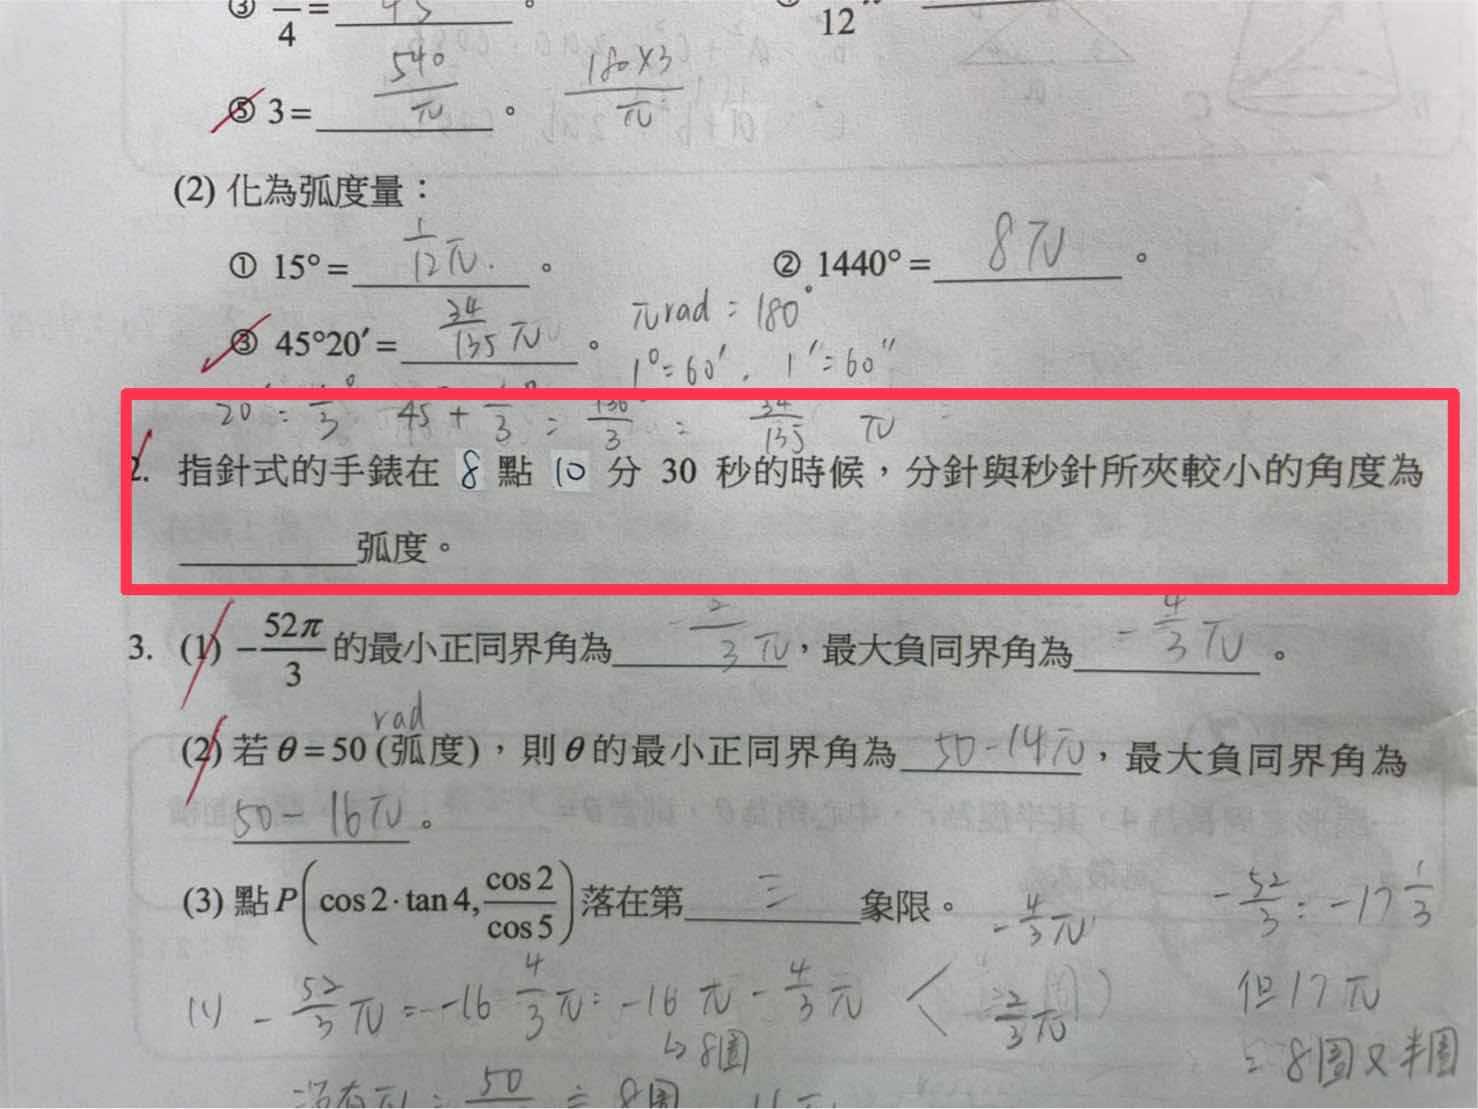 ③ /4 = 45 。
12
⑤ 3 = 540/π 。 180×3/π
(2) 化為弧度量：
① 15° = 1/12 π . 。 ② 1440° = 8π 。
③ 45°20′ = 34/135 π 。 πrad = 180°
1° = 60′ , 1′ = 60″
20′ = 1/3° 45 + 1/3° = 136°/3 = 34/135 π
2. 指針式的手錶在 8 點 10 分 30 秒的時候，分針與秒針所夾較小的角度為
弧度。
3. (1) −52π/3 的最小正同界角為 2/3 π，最大負同界角為 −4/3 π 。
rad
(2) 若 θ = 50 (弧度)，則 θ 的最小正同界角為 50−14π，最大負同界角為
50−16π 。
(3) 點 P(cos 2 · tan 4, cos 2/cos 5) 落在第 三 象限。
−4/3 π −52/3 = −17 1/3
(1) −52/3 π = −16 4/3 π = −16 π − 4/3 π < 2/3 π 但17π
↳ 8圈 = 8圈又半圈
沒有π : 50 ≐ 8圈